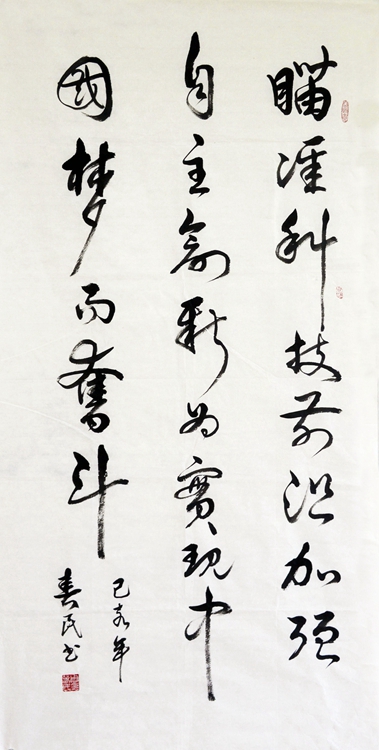 瞄準科技前沿加强
自主創新为實現中
國梦而奮斗
己亥年
春民书